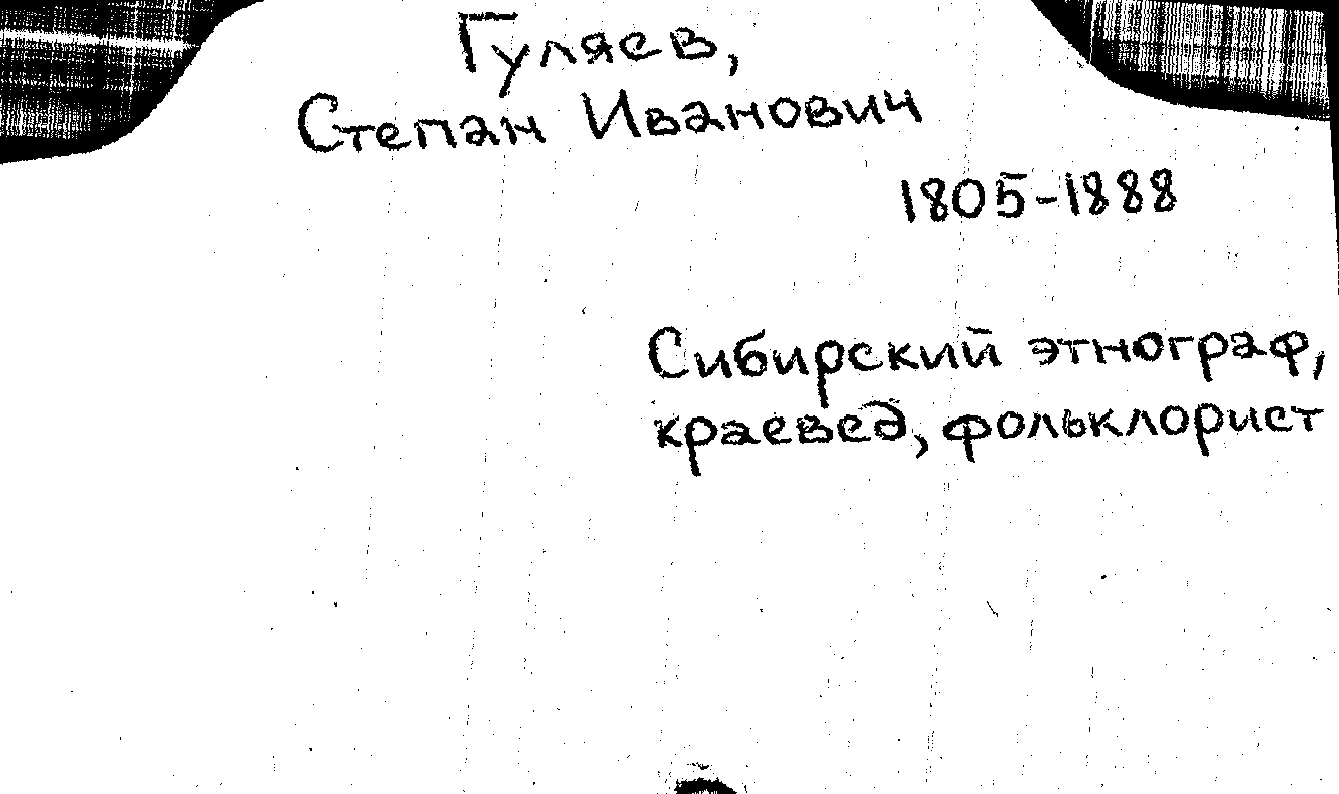 Гуляев,
Степан Иванович
1805-1888
Сибирский этнограф,
краевед, фольклорист